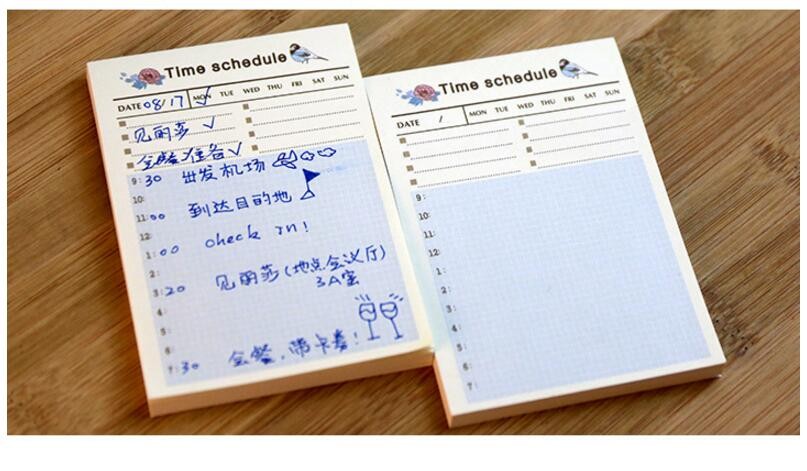 Time schedule
DATE 08/17 MON TUE WED THU FRI SAT SUN
见丽莎 ✓
会餐准备 ✓
9:30 出发机场
10:
11:00 到达目的地
12:
1:00 check in!
2:
3:20 见丽莎(地点会议厅)
3A室
4:
5:
6:
7:30 会餐,带卡
Time schedule
DATE / MON TUE WED THU FRI SAT SUN
9:
10:
11:
12:
1:
2:
3:
4:
5:
6:
7: